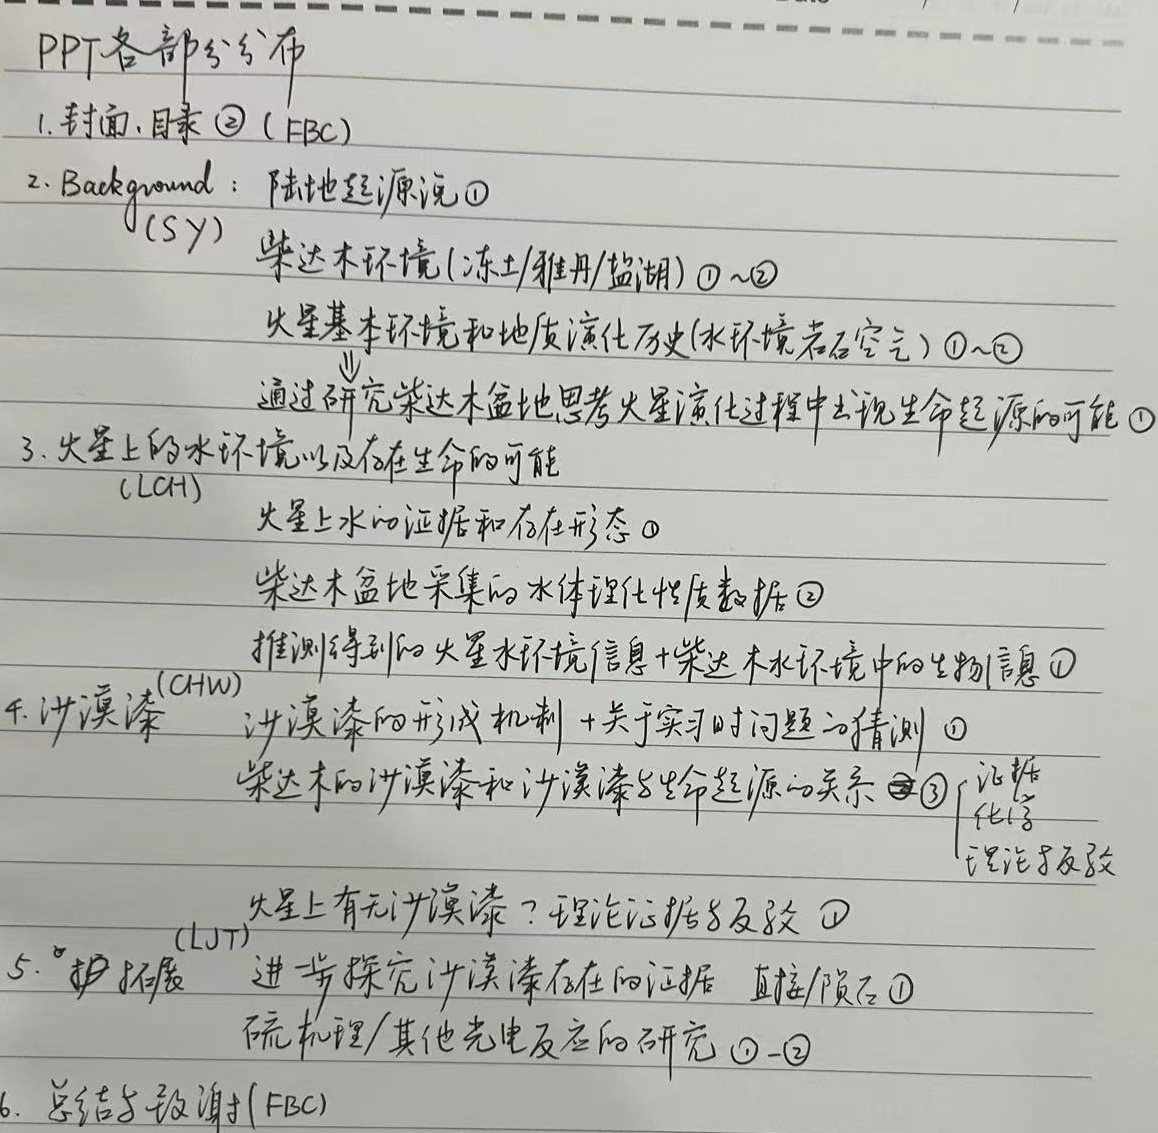 PPT各部分分布
1.封面、目录②(FBC)
2. Background: 陆地起源说①
(SY)
柴达木环境(冻土/雅丹/盐湖)①~②
火星基本环境和地质演化历史(水环境岩石空气)①~②
⇓
通过研究柴达木盆地思考火星演化过程中出现生命起源的可能①
3.火星上的水环境以及存在生命的可能
(LCH)
火星上水的证据和存在形态①
柴达木盆地采集的水体理化性质数据②
推测得到的火星水环境信息+柴达木水环境中的生物信息①
4.沙漠漆(CHW) 沙漠漆的形成机制+关于实习时问题的猜测①
柴达木的沙漠漆和沙漠漆与生命起源的关系③ 证据
化学
理论与反驳
火星上有无沙漠漆?理论证据与反驳①
(LJT)
5. 拓展 进一步探究沙漠漆存在的证据 直接/陨石①
硫机理/其他光电反应的研究①-②
6. 总结与致谢(FBC)